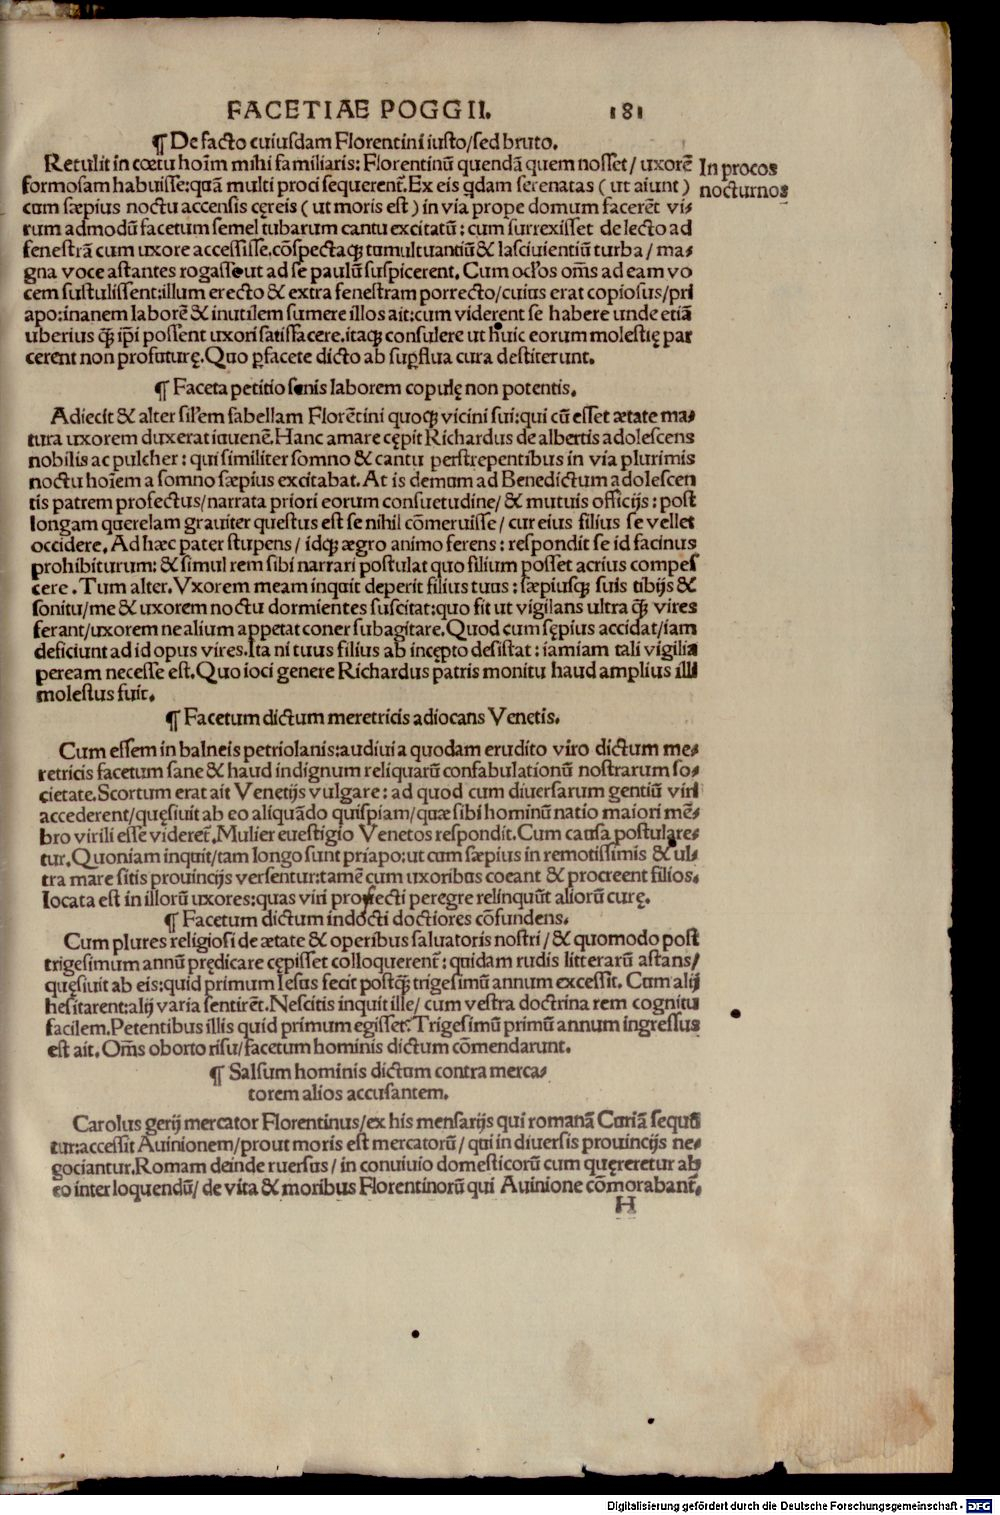 FACETIAE POGGII. 181
¶ De facto cuiusdam Florentini iusto/sed bruto.
Retulit in cœtu hoīm mihi familiaris: Florentinū quendā quem nosset/ uxorē
In procos
nocturnos
formosam habuisse:quā multi proci sequerent̄. Ex eis qdam serenatas ( ut aiunt )
cum sæpius noctu accensis cęreis ( ut moris est ) in via prope domum facerēt vi⸗
rum admodū facetum semel tubarum cantu excitatū : cum surrexisset de lecto ad
fenestrā cum uxore accessisse.cōspectaqꝫ tumultuantiū & lasciuientiū turba / ma⸗
gna voce astantes rogasse ut ad se paulū suspicerent. Cum ocl'os om̄s ad eam vo
cem sustulissent:illum erecto & extra fenestram porrecto/cuius erat copiosus/pri
apo:inanem laborē & inutilem sumere illos ait:cum viderent se habere unde etiā
uberius qꝫ̄ ip̄i possent uxori satisfacere.itaqꝫ consulere ut huic eorum molestię par
cerent non profuturę. Quo ꝑfacete dicto ab suꝑflua cura destiterunt.
¶ Faceta petitio senis laborem copulę non potentis.
Adiecit & alter sil'em fabellam Florētini quoqꝫ vicini sui:qui cū esset ætate ma⸗
tura uxorem duxerat iuuenē. Hanc amare cępit Richardus de albertis adolescens
nobilis ac pulcher : qui similiter somno & cantu perstrepentibus in via plurimis
noctu hoīem a somno sæpius excitabat. At is demum ad Benedictum adolescen
tis patrem profectus/narrata priori eorum consuetudine/ & mutuis officijs : post
longam querelam grauiter questus est se nihil cōmeruisse/ cur eius filius se vellet
occidere. Ad hæc pater stupens / idqꝫ ægro animo ferens : respondit se id facinus
prohibiturum: & simul rem sibi narrari postulat quo filium posset acrius compes
cere . Tum alter. Vxorem meam inquit deperit filius tuus : sæpiusqꝫ suis tibijs &
sonitu/me & uxorem noctu dormientes suscitat:quo fit ut vigilans ultra qꝫ̄ vires
ferant/uxorem ne alium appetat coner subagitare. Quod cum sępius accidat/iam
deficiunt ad id opus vires. Ita ni tuus filius ab incępto desistat : iamiam tali vigilia
peream necesse est. Quo ioci genere Richardus patris monitu haud amplius illi
molestus fuit.
¶ Facetum dictum meretricis adiocans Venetis.
Cum essem in balneis petriolanis:audiui a quodam erudito viro dictum me⸗
retricis facetum sane & haud indignum reliquarū confabulationū nostrarum so⸗
cietate. Scortum erat ait Venetijs vulgare : ad quod cum diuersarum gentiū viri
accederent/quęsiuit ab eo aliquādo quispiam/quæ sibi hominū natio maiori mē⸗
bro virili esse videret̄. Mulier euestigio Venetos respondit. Cum causa postulare⸗
tur. Quoniam inquit/tam longo sunt priapo:ut cum sæpius in remotissimis & ul⸗
tra mare sitis prouincijs versentur:tamē cum uxoribus coeant & procreent filios.
locata est in illorū uxores:quas viri profecti peregre relinquūt aliorū curę.
¶ Facetum dictum indocti doctiores cōfundens.
Cum plures religiosi de ætate & operibus saluatoris nostri / & quomodo post
trigesimum annū prędicare cępisset colloquerent̄ : quidam rudis litterarū astans/
quęsiuit ab eis:quid primum Iesus fecit postqꝫ̄ trigesimū annum excessit. Cum alij
hesitarent:alij varia sentirēt. Nescitis inquit ille/ cum vestra doctrina rem cognitu
facilem. Petentibus illis quid primum egisset: Trigesimū primū annum ingressus
est ait. Om̄s oborto risu/facetum hominis dictum cōmendarunt.
¶ Salsum hominis dictum contra merca⸗
torem alios accusantem.
Carolus gerij mercator Florentinus/ex his mensarijs qui romanā Curiā sequū
tur:accessit Auinionem/prout moris est mercatorū / qui in diuersis prouincijs ne⸗
gociantur. Romam deinde ruersus / in conuiuio domesticorū cum quęreretur ab
eo inter loquendū/ de vita & moribus Florentinorū qui Auinione cōmorabant̄.
H
Digitalisierung gefördert durch die Deutsche Forschungsgemeinschaft - DFG